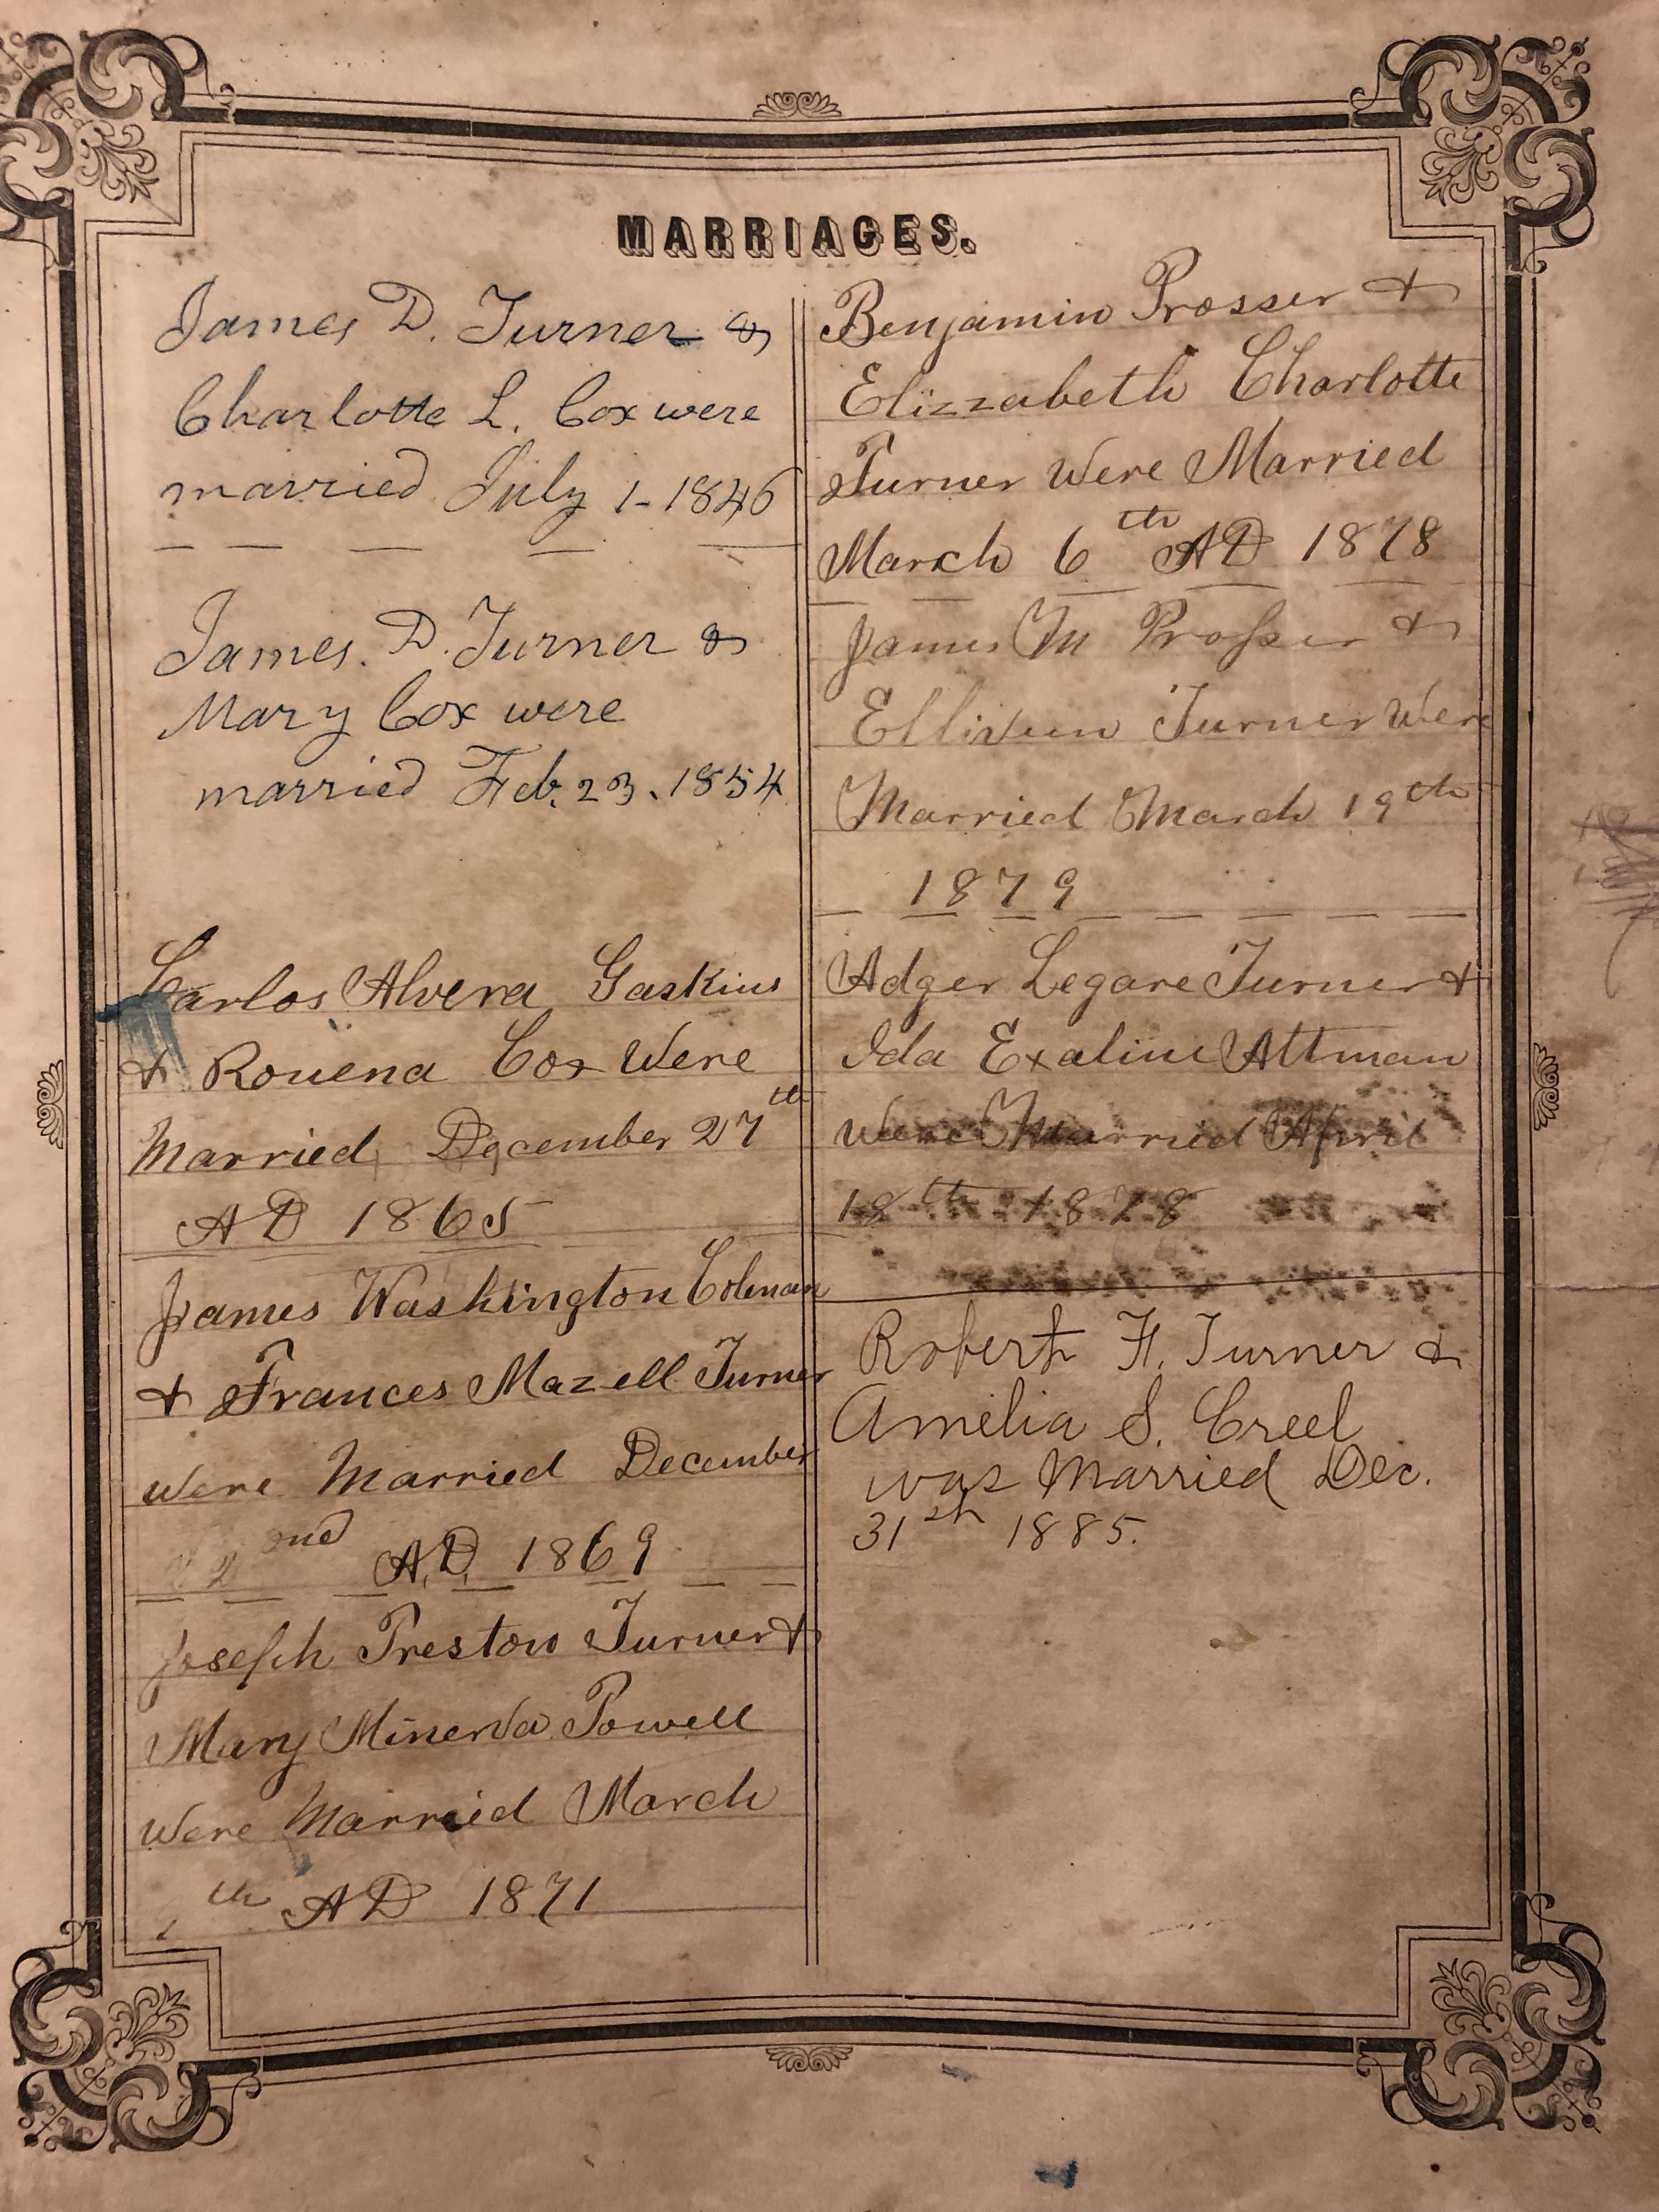 MARRIAGES.
James D. Turner &
Charlotte L. Cox were
married July 1-1846
James. D. Turner &
Mary Cox were
married Feb. 23. 1854
Carlos Alvera Gaskins
& Rouena Cox Were
Married December 27th
AD 1865
James Washington Coleman
& Frances Mazell Turner
were Married December
nd A.D. 1869
Joseph Preston Turner &
Mary Minerva Powell
Were Married March
th AD 1871
Benjamin Prosser &
Elizzabeth Charlotte
Turner Were Married
March 6th AD 1878
James M Prosser &
Turner Were
Married March 19th
1879
Adger Legare Turner &
Ida Exaline Altman
Were Married April
18th 1878
Robert F. Turner &
Amelia S. Creel
was Married Dec.
31th 1885.